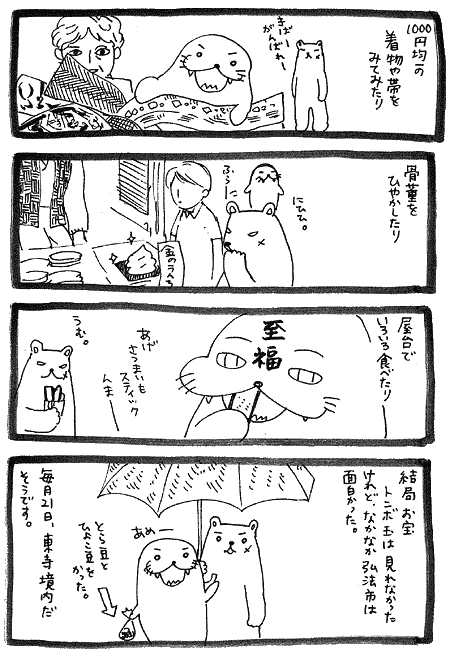 1000円均一の
着物や帯を
みてみたり
きばー
がんばれー
骨董を
ひやかしたり
にひひ。
ふらーに
金のうんち
屋台で
いろいろ食べたり
至福
あげ
さつまいも
スティック
んまー
うむ。
結局 お宝
トンボ玉は 見れなかった
けれど、なかなか 弘法市は
面白かった。
あめー
とら豆と
ひよこ豆を
かった。
毎月21日、東寺境内だ
そうです。